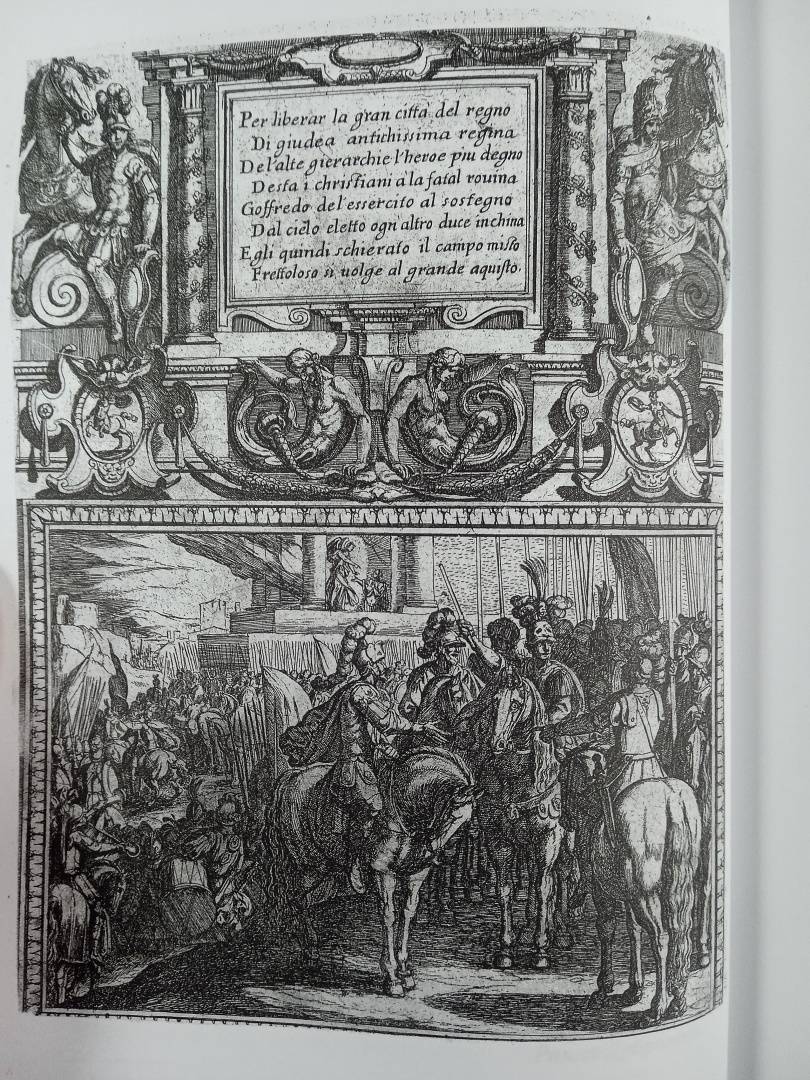 Per liberar la gran citta del regno
Di giudea antichissima regina
Del'alte gierarchie l'heroe piu degno
Desta i christiani a la fatal rouina
Goffredo del'essercito al sostegno
Dal cielo eletto ogn'altro duce inchina
Egli quindi schierato il campo misto
Frettoloso si uolge al grande aquisto.